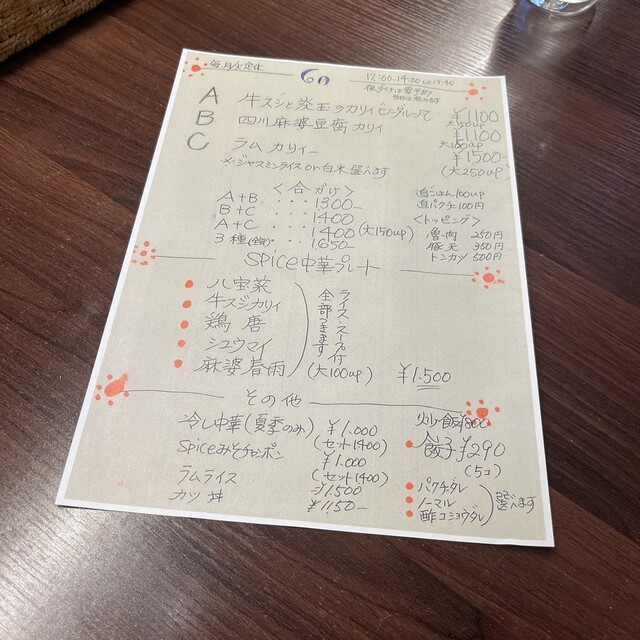 毎月火定休
12:00-14:00 LO 13:45
A 牛スジと炎王のカリィビンダルー风 ¥1,100
大100up
B 四川麻婆豆腐カリィ ¥1100
大100up
C ラム カリィー ¥1500-
※ジャスミンライス or 白米 選べます (大250up)
<合がけ>
A+B ・・・ 1300-
B+C ・・・ 1400
A+C ・・・ 1400 (大150up)
3種 ・・・ 1650-
追ごはん100up
追パクチ100円
<トッピング>
魯肉 250円
豚天 350円
トンカツ 500円
spice中華プレート
八宝菜
牛スジカリィ
鶏唐
シュウマイ
麻婆春雨
ライス・スープ付
全部つきます
(大100up) ¥1.500
その他
冷し中華(夏季のみ) ¥1.000
(セット1400)
spiceみそチャンポン ¥1.000
(セット1400)
ラムライス ¥1.500
カツ丼 ¥1150-
炒飯¥800
餃子¥290
(5コ)
パクチダレ
ノーマル
酢コショウダレ
選べます